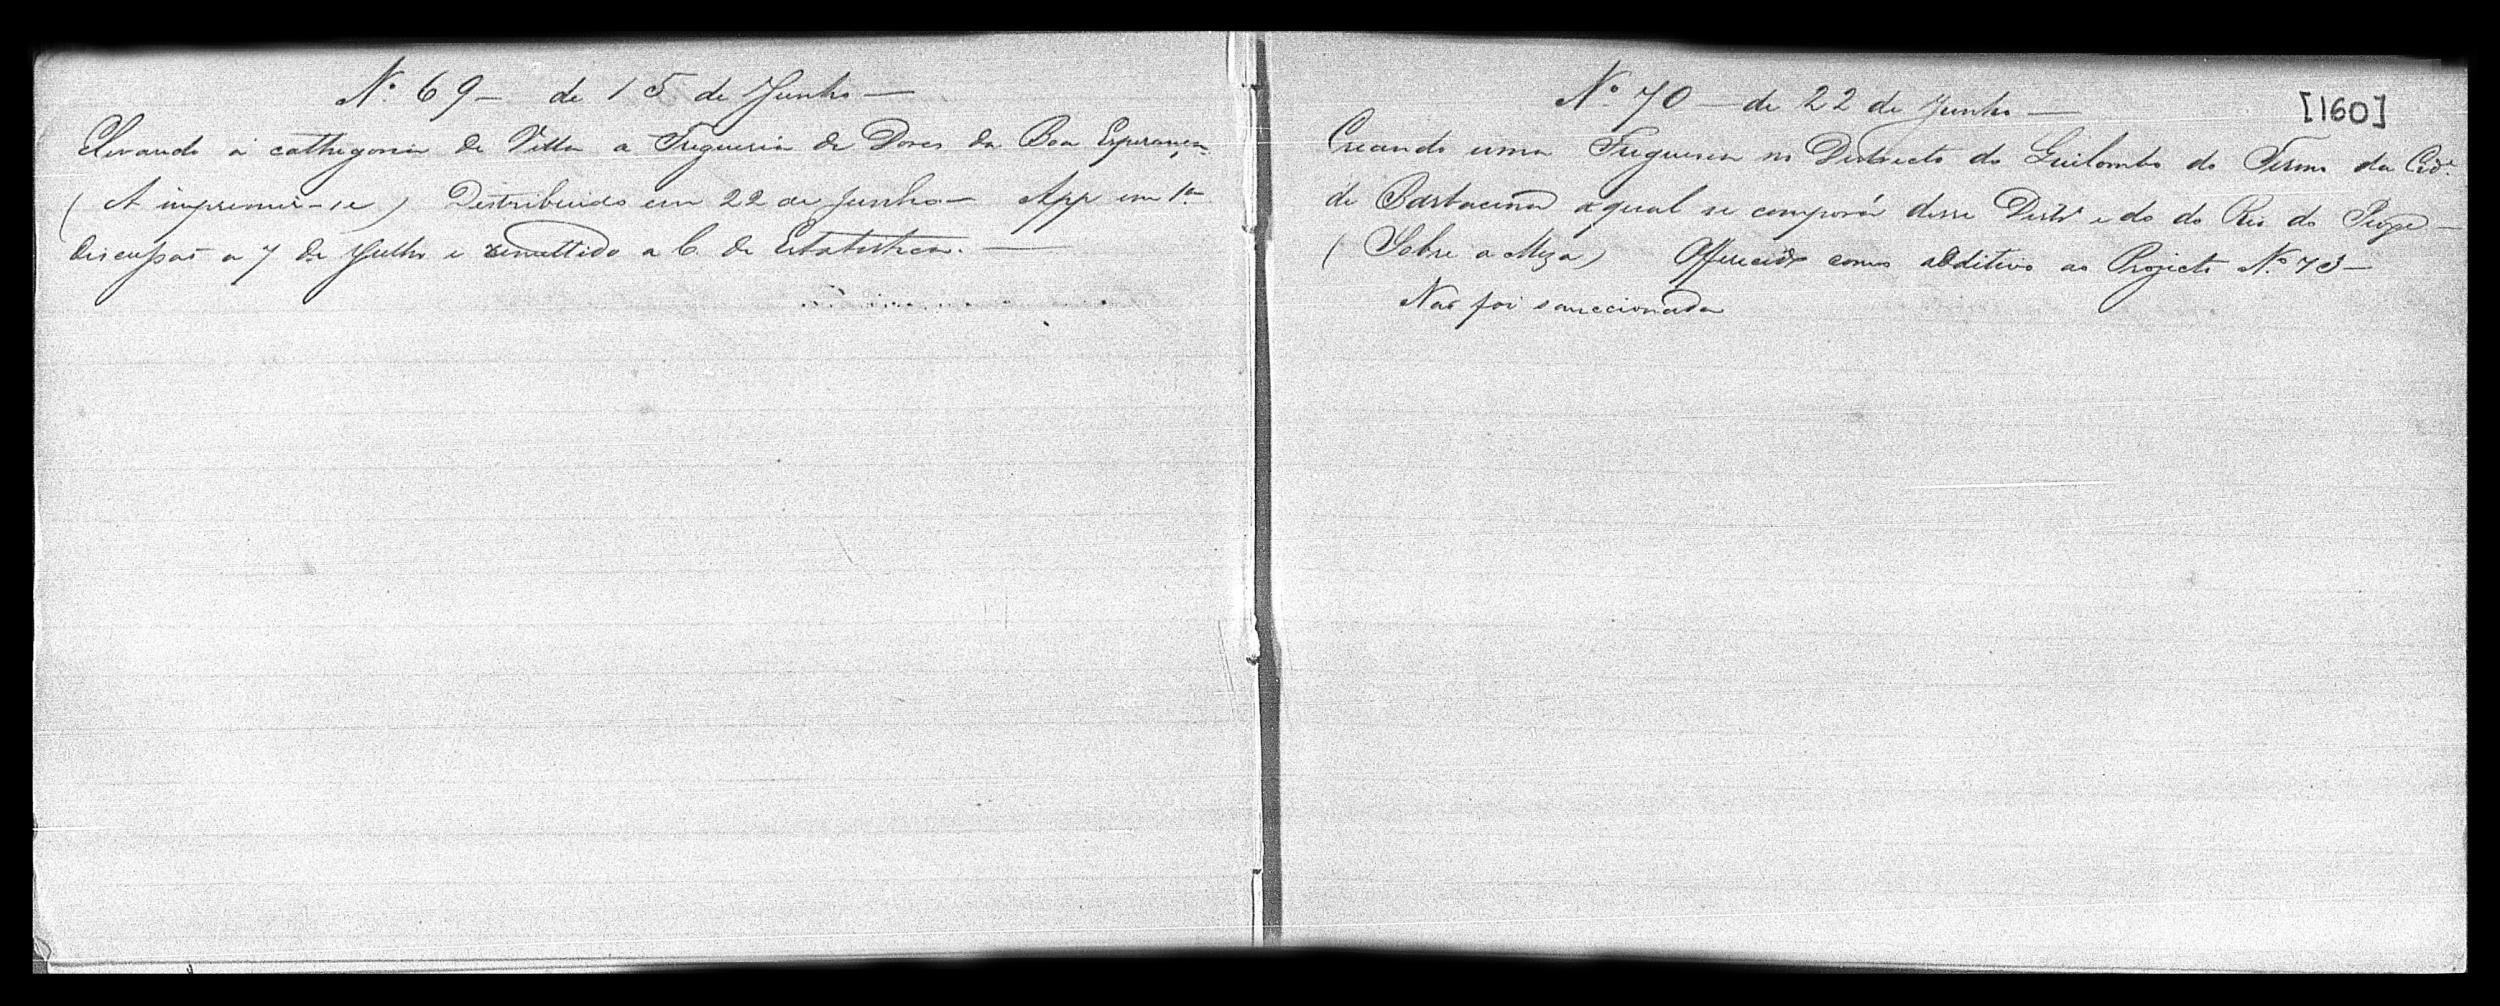 Nº 69 — de 15 de Junho —
Elevando á cathegoria de Villa a Freguesia de Dores da Boa Esperança.
( A imprimir-se ) Destribuido em 22 de Junho — App em 1ª
discussão a 7 de Julho e remettido a C. de Estatistica. —
Nº 70 — de 22 de Junho —
[160]
Creando uma Freguesia no Districto do Quilombo do Termo da Cidᵉ
de Barbacena a qual se comporá desse Distrº e do do Rio do Peixe —
( Sobre a Meza ) Offerecido como additivo ao Projecto Nº 73 —
Não foi sanccionada